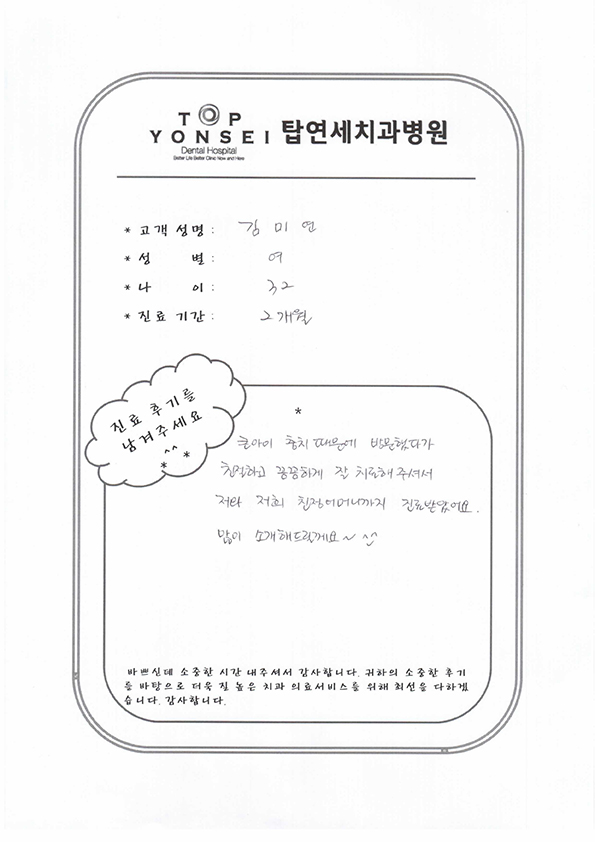 TOP
YONSEI 탑연세치과병원
Dental Hospital
Better Life Better Clinic Now and Here
* 고객성명 : 김미연
* 성 별 : 여
* 나 이 : 32
* 진료기간 : 2개월
진료 후기를
남겨주세요
^^
* *
*
큰아이 충치 때문에 방문했다가
친절하고 꼼꼼하게 잘 치료해주셔서
저와 저희 친정어머니까지 진료받았어요.
많이 소개해드릴게요~ ^^
바쁘신데 소중한 시간 내주셔서 감사합니다. 귀하의 소중한 후기
를 바탕으로 더욱 질 높은 치과 의료서비스를 위해 최선을 다하겠
습니다. 감사합니다.